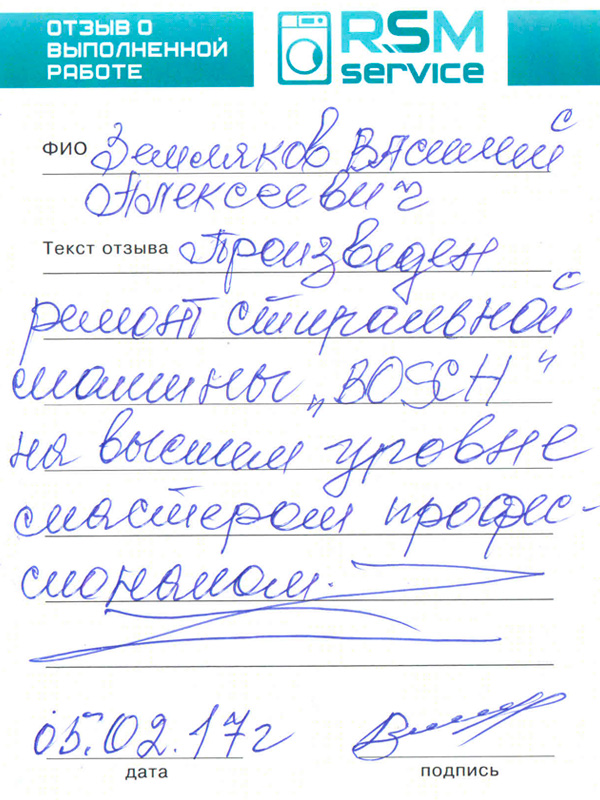 ОТЗЫВ О
ВЫПОЛНЕННОЙ
РАБОТЕ
RSM
service
ФИО Земляков Василий
Алексеевич
Текст отзыва Произведен
ремонт стиральной
машины „BOSCH“
на высшем уровне
мастером профес-
сионалом.
05.02.17г
дата
подпись